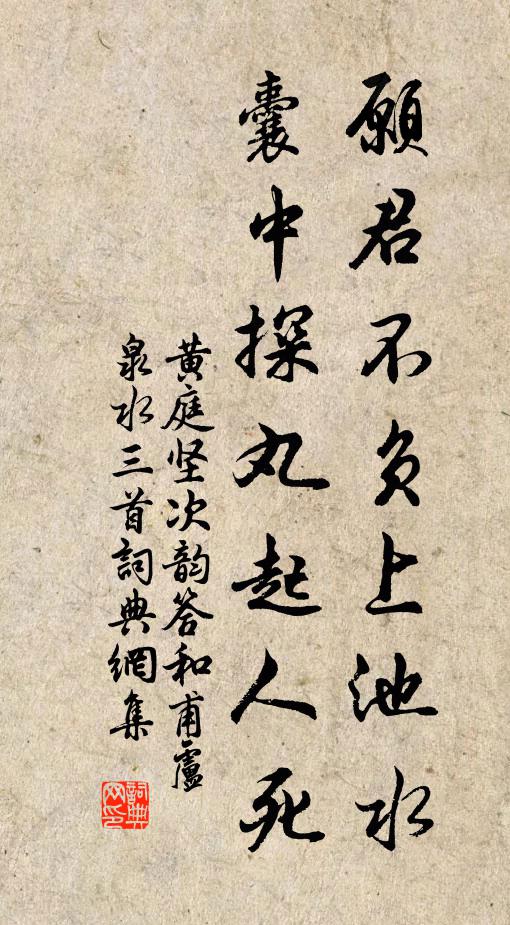 願君不负上池水
囊中探丸起人死
黄庭坚次韵答和甫盧
泉水三首詞典網集
詞典
网印